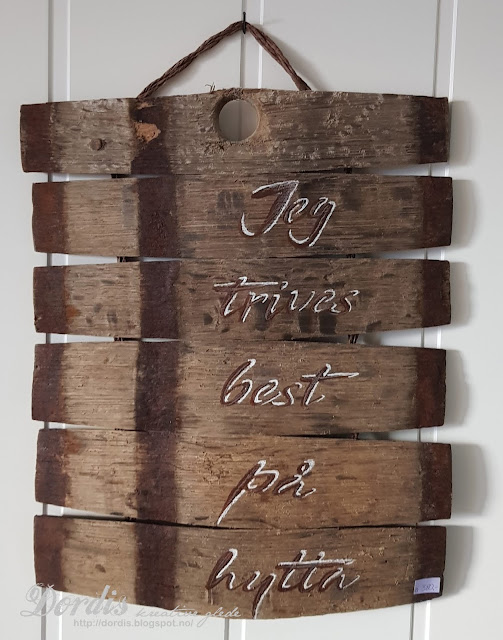 Jeg
trivas
best
på
hytta
Dordis
kreative glede
http://dordis.blogspot.no/